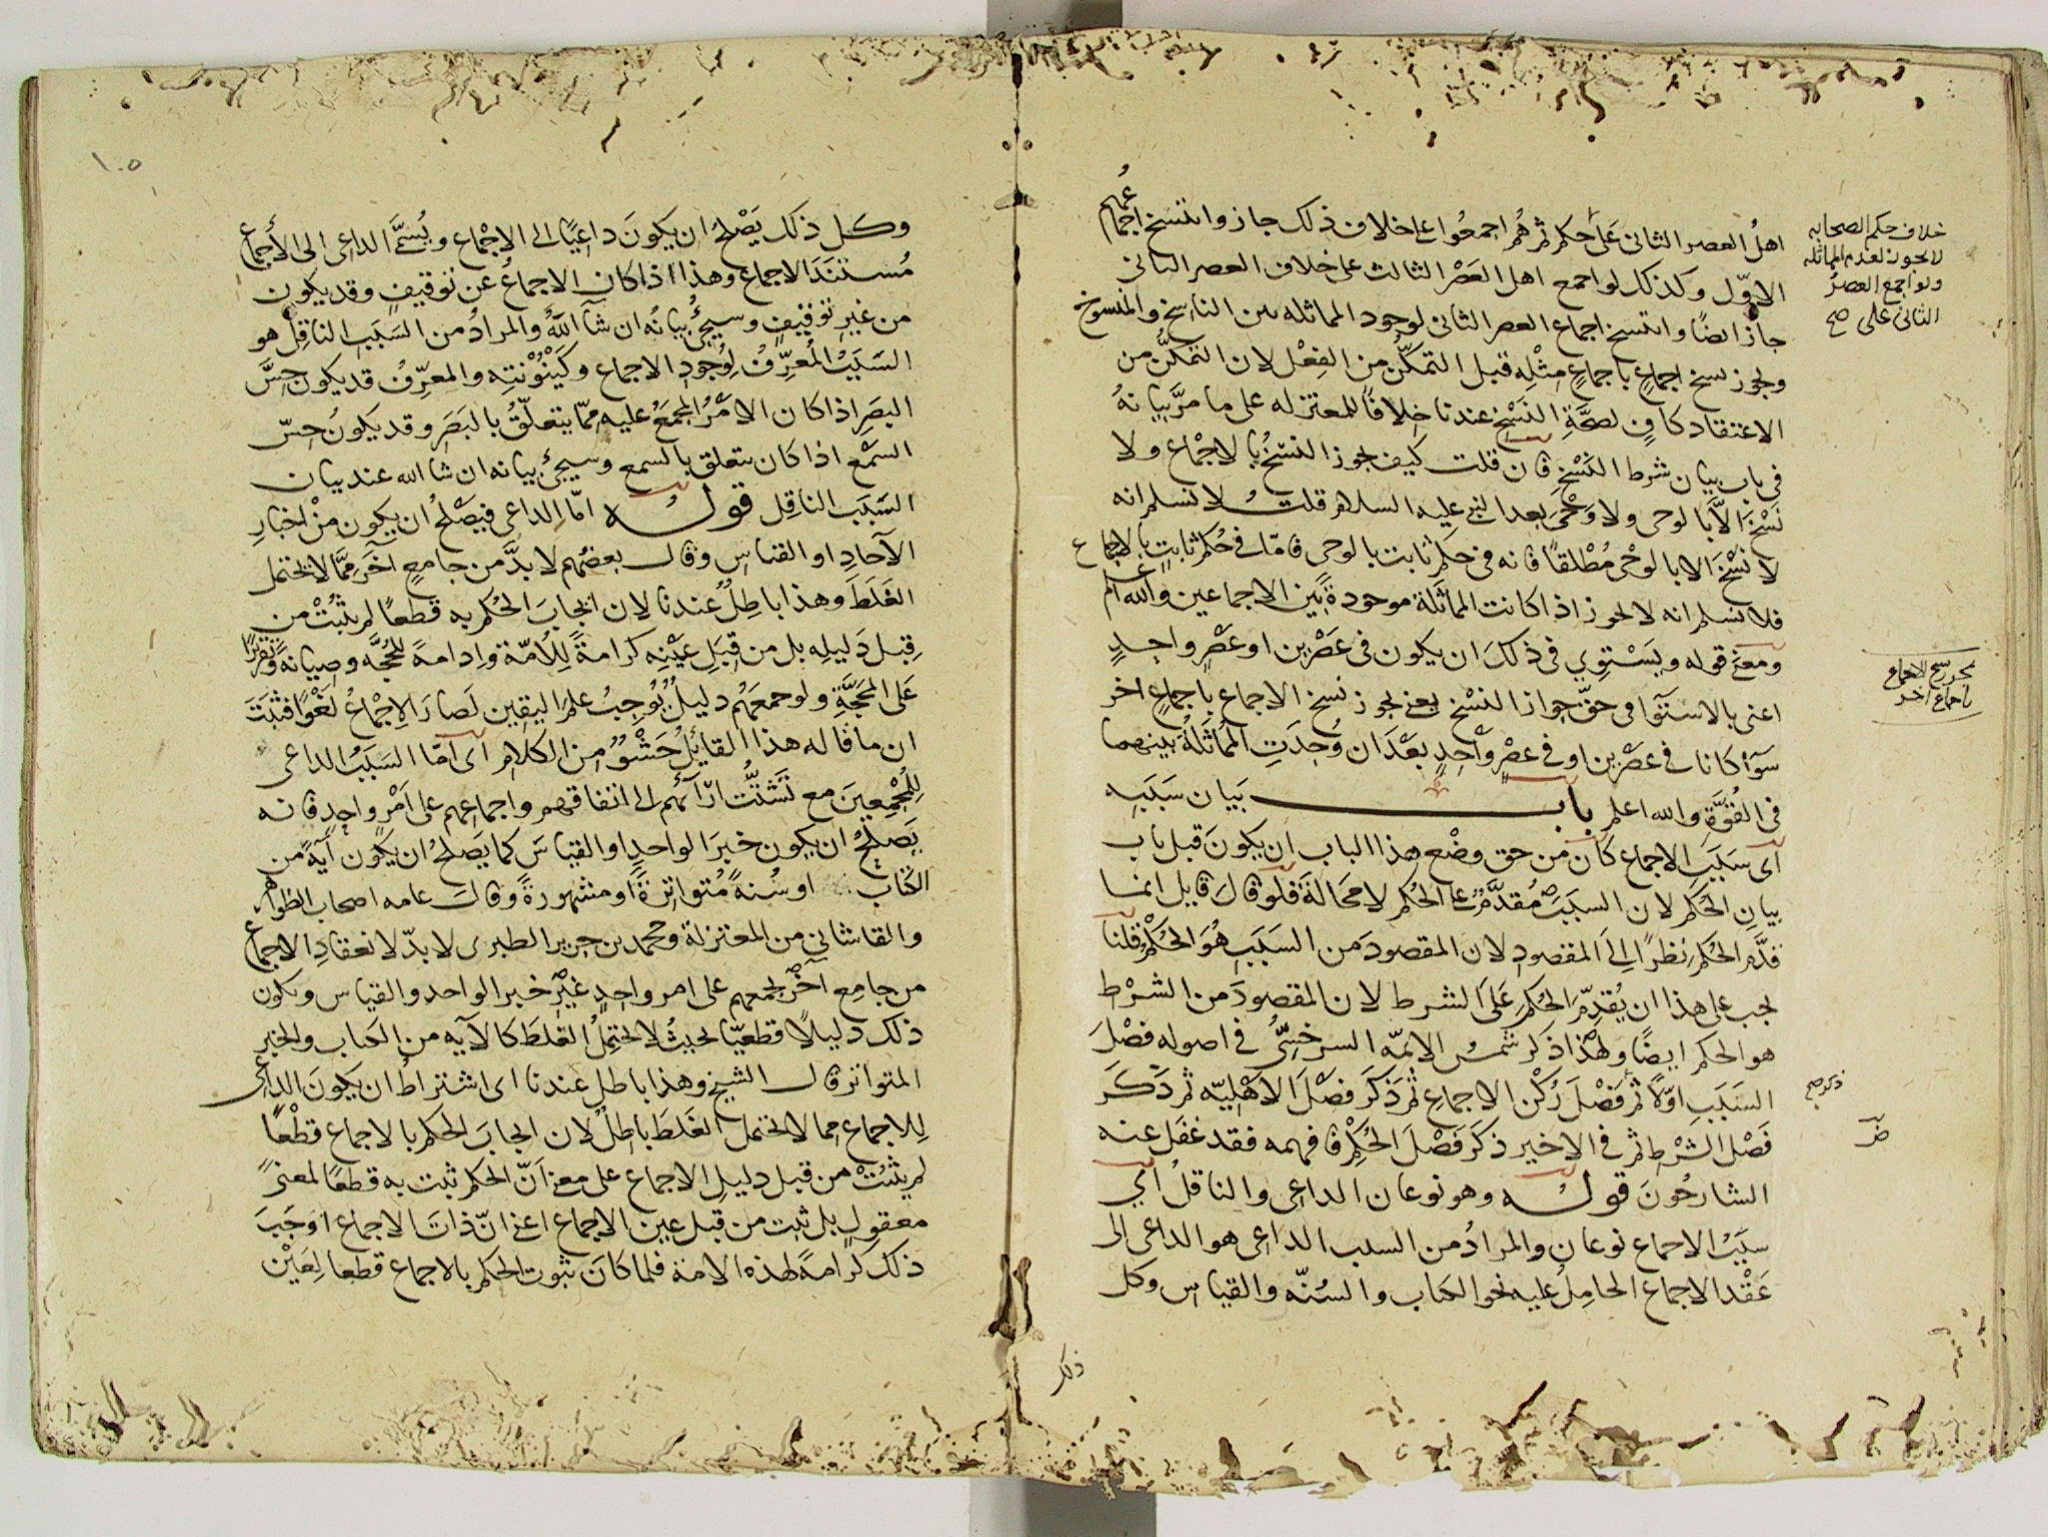 اهلُ العصر الثانى عَلَى حكم ثم هُم اجمعُوا على خلاف ذلك جاز وانتسخ اجماعُهم
الاوّل وكذلك لو اجمع اهل العَصْر الثالث على خلاف العصر الثانى
جاز ايضًا وانتسخ اجماع العصر الثانى لوجود المماثله بين الناسخ والمنسوخ
ويجوز نسخ اجماعٍ باجماعٍ مِثْلِه قبل التمكّن من الفِعْل لان التمكّن من
الاعتقاد كافٍ لصحَّةِ النَسْخ عندنا خلافًا للمعتزله على ما مرَّ بيانهُ
فى باب بيان شرط النَسْخ فان قلت كيف يجوز النَسْخُ بالاجْماع ولا
نَسْخَ الّا بالوحى ولا وَحْىَ بعد النبى عليه السلام قلتُ لا نسلم انه
لا نَسْخَ الا بالوحْى مُطْلقًا فانه فى حكم ثابت بالوحى فامّا فى حُكم ثابتٍ بالاجماع
فلا نسلم انه لا يجوز اذا كانت المماثَلة موجودةً بَين الاجماعين والله اعلم
ومعنى قوله ويَسْتوِي فى ذلكَ ان يكون فى عَصْرين او عَصْرٍ واحدٍ
اعنى بالاستوآ فى حقّ جواز النسْخ يعنى يجوز نسخ الاجماع باجماعٍ اخر
سَوآ كانا فى عصْرين او فى عصْرٍ واحدٍ بعْدَ ان وُجدَتِ المُماثَلةُ بينهما
فى القُوَّةِ والله اعلم باب بَيان سَبَبِه
اى سَبَبِ الاجماع كان من حق وضْع هذا الباب ان يكونَ قبل باب
بيانِ الحُكم لان السبَبَ مُقدَّمٌ على الحُكم لا محَالةَ فلو قالَ قايل انما
قدَّم الحُكم نظرًا اِلَى المقصودِ لان المقصودَ من السَبَبِ هُوَ الحُكْم قلنا
يجب على هذا ان يُقدِّمَ الحُكم عَلَى الشرط لان المقصودَ من الشرْط
هو الحكم ايضًا ولهذا ذكر شمسُ الايمّه السرخسِىُّ فى اصوله فصْلَ
السَبَبِ اوّلًا ثم فَصْلَ رُكْن الاجماعِ ثم ذَكَرَ فصْلَ الاهْلِيّه ثم ذَكَرَ
فَصْل الشَرْطِ ثم فى الاخير ذكَرَ فَصْلَ الحُكْمِ فافهمه فقد غَفَل عنه
الشارحُونَ قولُه وهو نوعان الداعى والناقلُ اى
سبَبُ الاجماع نوعان والمرادُ من السبب الداعى هو الداعى الى
عَقْد الاجماع الحامِلُ عليه نحو الكتاب والسُنّه والقياس وكل
ذلك
خلاف حكم الصحابه
لا يجوز لعدم المماثله
ولو اجمع العصرُ
الثانى على صح
يجوز نسخ الاجماع
باجماع اخر
ذكر صح
١٠٥
وكل ذلك يَصْلحُ ان يكونَ داعيًا الى الاجْماع ويُسمَّى الداعى الى الاجماع
مُستنَدَ الاجماع وهذا اذا كان الاجماعُ عن توقيفٍ وقد يكون
من غير توقيفٍ وسيجىُ بيانُه ان شآ اللهُ والمرادُ من السَبَب الناقِل هو
السَبَبُ المُعرِّفُ لوُجودِ الاجماع وكَيْنُوْنتِه والمعرِّفُ قد يكون حِسَّ
البصَرِ اذا كان الامْرُ المجمَعُ عليه مِمّا يتعلّقُ بالبَصَر وقد يكونُ حِسّ
السَمْع اذا كان يتعلق بالسمع وسيجىُ بيانه ان شا الله عند بيان
السَبَب الناقِل قولُه امّا الداعى فيصْلحُ ان يكون من اخبارِ
الآحادِ او القياس وقال بعضُهم لا بدَّ من جامعٍ آخَر مِمَّا لا يحتمل
الغَلَطَ وهذا باطِلٌ عندنا لان ايجابَ الحُكم به قطعًا لم يثبُتْ من
قِبل دَليلِه بل من قِبَلِ عَيْنِه كرامةً لِلأمّة واِدامةً للحُجَّه وصيانةً وتقريرًا
عَلَى المَحَجَّةِ ولو جمعَهُم دليلٌ يُوجِبُ علم اليَقين لَصارَ الاِجْماعُ لَغْوًا فثَبَتَ
ان ما قاله هذا القائِلُ حَشْوٌ من الكلام اى امّا السبَبُ الداعى
لِلمُجْمِعِينَ مع تَشَتُّتِ ارآئهم الى اتفاقهم واجماعهم على اَمْرٍ واحدٍ فانه
يَصلحُ ان يكون خبَرَ الواحدِ او القياسَ كما يَصلحُ ان يكُون آيةً من
الكتاب او سُنةً مُتواترةً او مشهورةً وقالَ عامه اصحاب الظواهر
والقاشانى من المعتزلة ومحمد بن جرير الطبرى لا بدّ لانعقادِ الاجماع
من جامعٍ آخر يجمعهم على امرٍ واحدٍ غيْرِ خبر الواحد والقياس ويكون
ذلك دليلًا قطعيّا بحيثُ لا يحتمِلُ الغلطَ كالآيه من الكتاب والخبرِ
المتواتر قال الشيخ وهذا باطل عندنا اى اشتراطُ ان يكونَ الداعى
لِلاجماع مما لا يحتمل الغَلَطَ باطِلٌ لان ايجابَ الحكم بالاجماع قطْعًا
لم يثبُتْ من قبل دليلِ الاجماع على معنى اَنّ الحكم ثبت به قطعًا لمعنًى
معقولٍ بل ثبت من قبل عين الاجماع اعنى انّ ذاتَ الاجماع اوجَبَ
ذلك كرامةً لهذه الامة فلما كانَ ثبوت الحكم بالاجماع قطعا لِعَيْن